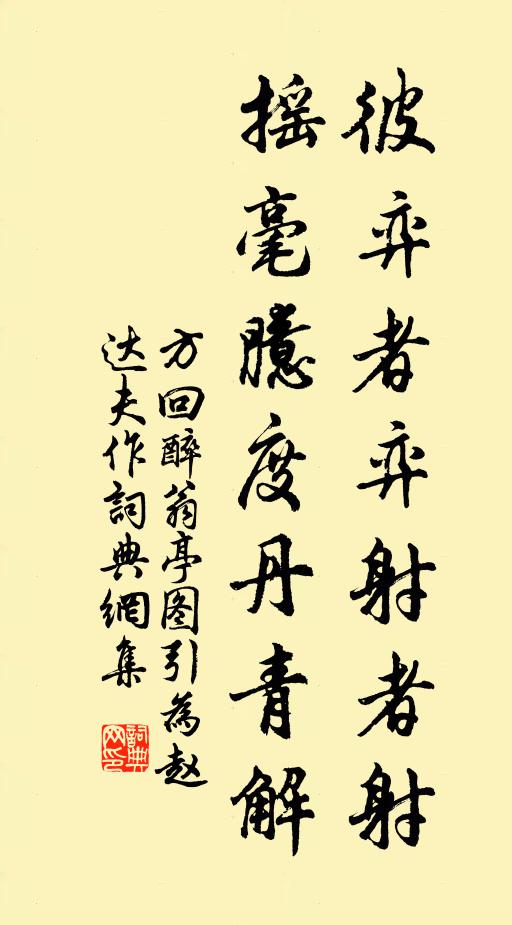 彼弈者弈射者射
摇毫臆度丹青解
方回醉翁亭图引为赵
达夫作詞典網集
詞典
网印